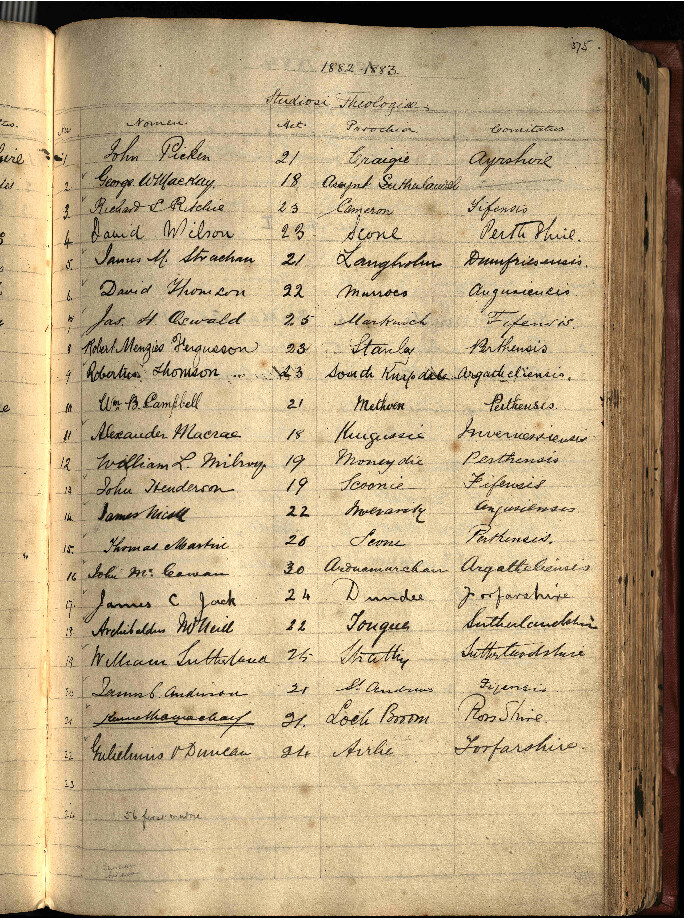 375.
1882-1883.
Studiosi Theologiae.
No Nomen Aet. Parochia Comitatus
1 John Picken 21 Craigie Ayrshire
2 George W Mackay. 18 Assynt Sutherlandsh
3 Richard S Ritchie 23 Cameron Fifensis
4 David Wilson 23 Scone Perth Shire.
5. James M. Strachan 21 Langholm Dumfriesensis.
6. David Thomson 22 Murroes Angusiensis
7 Jas. H. Oswald 25 Markinch Fifensis.
8 Robert Menzies Fergusson 23 Stanley Perthensis
9 Robertus Thomson 23 South Knapdale Argatheliensis.
10 Wm B. Campbell 21 Methven Perthensis.
11 Alexander Macrae 18 Kingussie Invernessiensis
12 William L. Milroy 19 Moneydie Perthensis
13 John Henderson 19 Scoonie Fifensis
14 James Nicoll 22 Inverarity Angusiensis
15. Thomas Martin 26 Scone Perthensis.
16 John McCowan 30 Ardnamurchan Argatheliensis
17. James C Jack 24 Dundee Forfarshire
18 Archibaldus McNeill 22 Tongue Sutherlandshire
19 William Sutherland 25 Strathy Sutherlandshire
20 James C. Anderson 21 St Andrews Fifensis
21 Kenneth Mackay 21. Loch Broom Ross Shire.
22 Gulielmus Duncan 24 Airlie Forfarshire.
23
24 56